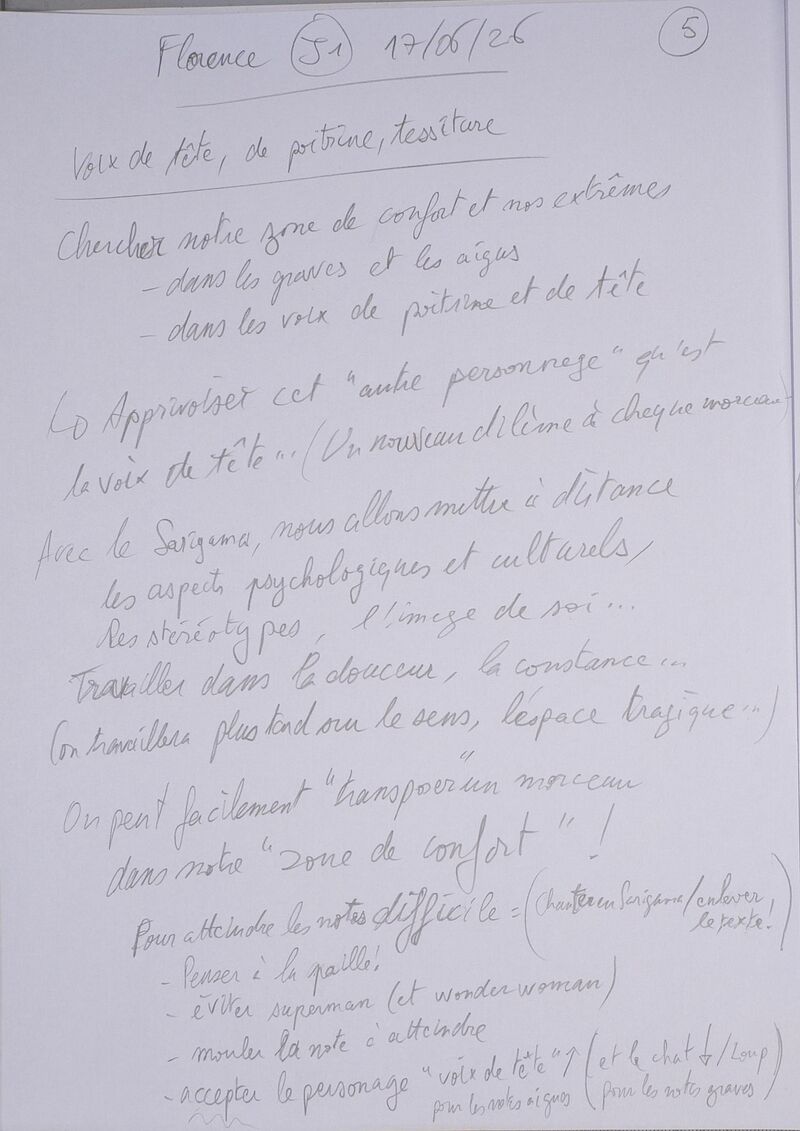 Florence S1 17/06/26 5
Voix de tête, de poitrine, tessiture
Chercher notre zone de confort et nos extrêmes
- dans les graves et les aigus
- dans les voix de poitrine et de tête
↳ Apprivoiser cet "autre personnage" qu'est
la voix de tête... (Un nouveau dilème à chaque morceau)
Avec le Sarigama, nous allons mettre à distance
les aspects psychologiques et culturels,
les stéréotypes, l'image de soi...
Travailler dans la douceur, la constance...
(on travaillera plus tard sur le sens, l'espace tragique...)
On peut facilement "transposer" un morceau
dans notre "zone de confort" !
Pour atteindre les notes difficile = (Chanter en Sarigama / enlever
le texte!)
- Penser à la paille!
- éviter superman (et wonder woman)
- mouler la note à atteindre
- accepter le personage "voix de tête" ↑ (et le chat ↓ / Loup
pour les notes aigues pour les notes graves)